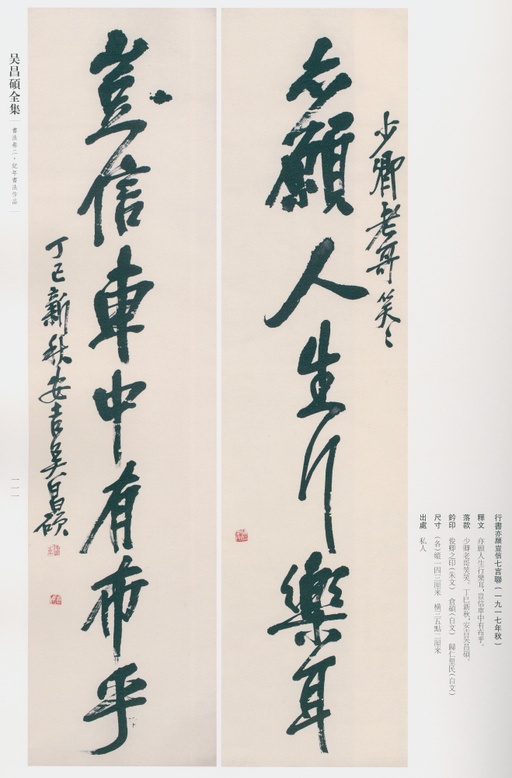 少卿老哥笑〻
亦願人生行樂耳
豈信車中有布乎
丁巳新秋安吉吳昌碩
行書亦願豈信七言聯（一九一七年秋）
釋文 亦願人生行樂耳，豈信車中有布乎。
落款 少卿老哥笑笑。丁巳新秋，安吉吳昌碩。
鈐印 俊卿之印（朱文） 倉碩（白文） 歸仁里民（白文）
尺寸 （各）縱一四三厘米 橫三五點二厘米
出處 私人
吴昌碩全集 書法卷二·紀年書法作品
一一一